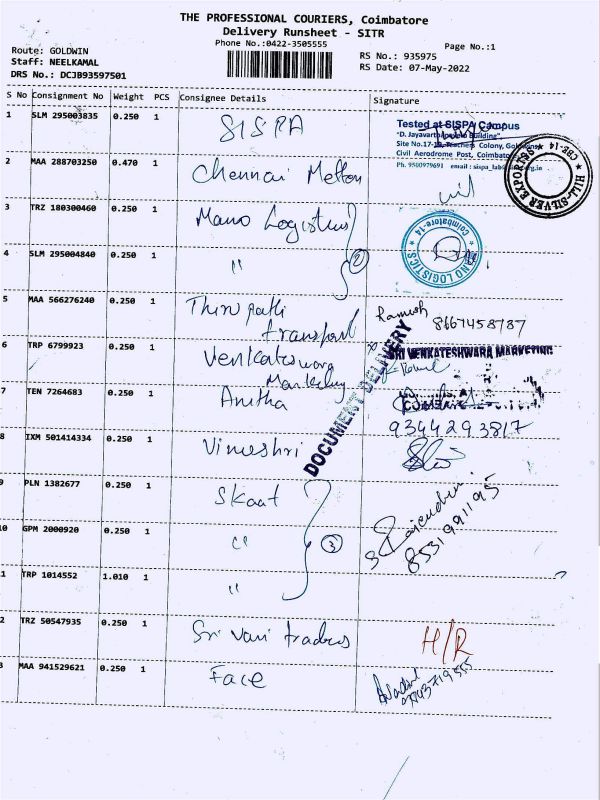 THE PROFESSIONAL COURIERS, Coimbatore
Delivery Runsheet - SITR
Phone No.:0422-3505555
Page No.:1
Route: GOLDWIN
Staff: NEELKAMAL
DRS No.: DCJB93597501
RS No.: 935975
RS Date: 07-May-2022
S No Consignment No Weight PCS Consignee Details Signature
1 SLM 295003835 0.250 1 SISPA
Tested at SISPA Campus
Site No.17-19, Teachers Colony, Goldwins
Civil Aerodrome Post, Coimbatore
Ph. 9500979691 email : sispa_lab
HILL-SILVER EXPORTS ★ CBE-14 ★
2 MAA 288703250 0.470 1 Chennai Metton
3 TRZ 180300460 0.250 1 Mano Logistics
Coimbatore-14
4 SLM 295004840 0.250 1 " 2
5 MAA 566276240 0.250 1 Thirupathi transport Ramesh 8667458787
DOCUMENT DELIVERY
6 TRP 6799923 0.250 1 Venkateswara Marketing
SRI VENKATESHWARA MARKETING
7 TEN 7264683 0.250 1 Anitha
9344293817
8 IXM 501414334 0.250 1 Vimeshri
9 PLN 1382677 0.250 1 Skaat
Rajendren
8531991195
10 GPM 2000920 0.250 1 " 3
1 TRP 1014552 1.010 1 "
2 TRZ 50547935 0.250 1 Sri Vani traders H/R
3 MAA 941529621 0.250 1 Face